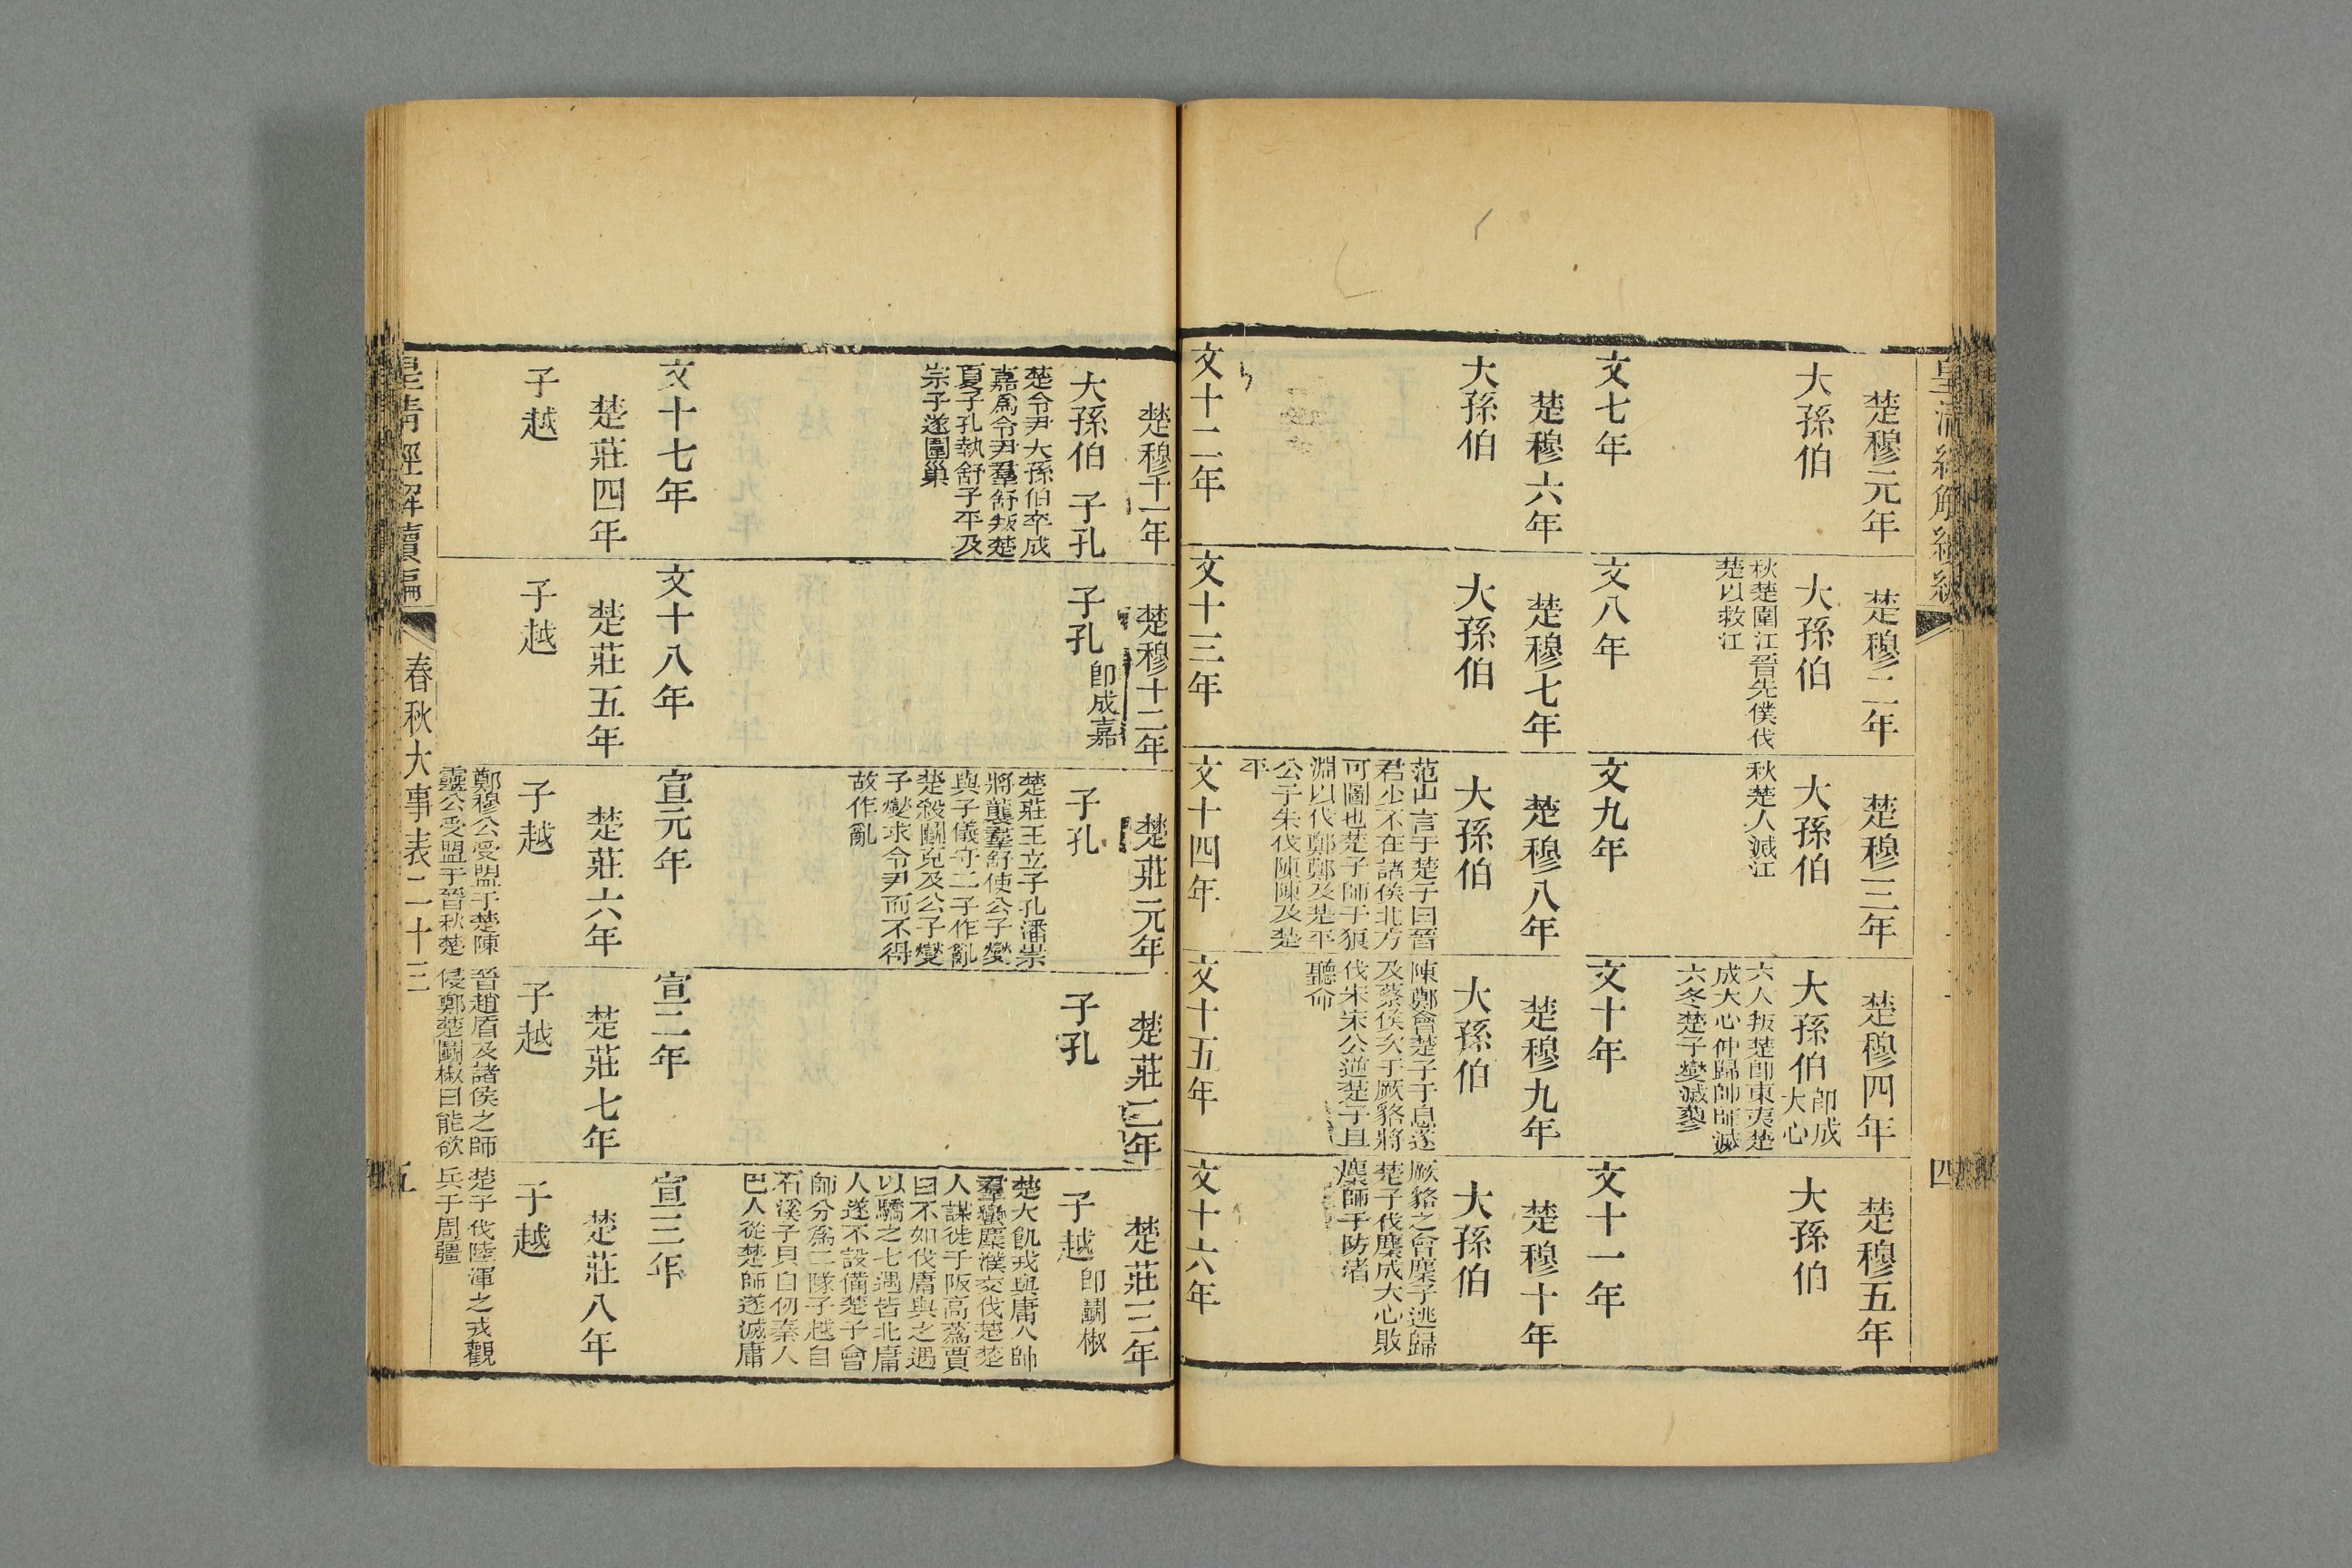 楚穆元年
大孫伯
楚穆二年
大孫伯
秋楚圍江晉先僕伐
楚以救江
楚穆三年
大孫伯
秋楚人滅江
楚穆四年
大孫伯卽成
大心
六人叛楚卽東夷楚
成大心仲歸帥師滅
六冬楚子燮滅蓼
楚穆五年
大孫伯
文七年
楚穆六年
大孫伯
文八年
楚穆七年
大孫伯
文九年
楚穆八年
大孫伯
范山言于楚子曰晉
君少不在諸侯北方
可圖也楚子師于狼
淵以伐鄭鄭及楚平
公子朱伐陳陳及楚
平
文十年
楚穆九年
大孫伯
陳鄭會楚子于息遂
及蔡侯次于厥貉將
伐宋宋公逆楚子且
聽命
文十一年
楚穆十年
大孫伯
厥貉之會麇子逃歸
楚子伐麇成大心敗
麇師于防渚
文十二年
文十三年
文十四年
文十五年
文十六年
楚穆十一年
大孫伯 子孔
楚令尹大孫伯卒成
嘉爲令尹羣舒叛楚
夏子孔執舒子平及
宗子遂圍巢
楚穆十二年
子孔卽成嘉
楚莊元年
子孔
楚莊王立子孔潘崇
將襲羣舒使公子燮
與子儀守二子作亂
楚殺鬬克及公子燮
子燮求令尹而不得
故作亂
楚莊二年
子孔
楚莊三年
子越卽鬬椒
楚大飢戎與庸人帥
羣蠻麇濮交伐楚楚
人謀徙于阪高蒍賈
曰不如伐庸與之遇
以驕之七遇皆北庸
人遂不設備楚子會
師分爲二隊子越自
石溪子貝自仞秦人
巴人從楚師遂滅庸
文十七年
楚莊四年
子越
文十八年
楚莊五年
子越
宣元年
楚莊六年
子越
鄭穆公受盟于楚陳
靈公受盟于晉秋楚
宣二年
楚莊七年
子越
晉趙盾及諸侯之師
侵鄭楚鬬椒曰能欲
宣三年
楚莊八年
子越
楚子伐陸渾之戎觀
兵于周疆
皇清經解續編
春秋大事表二十三
五